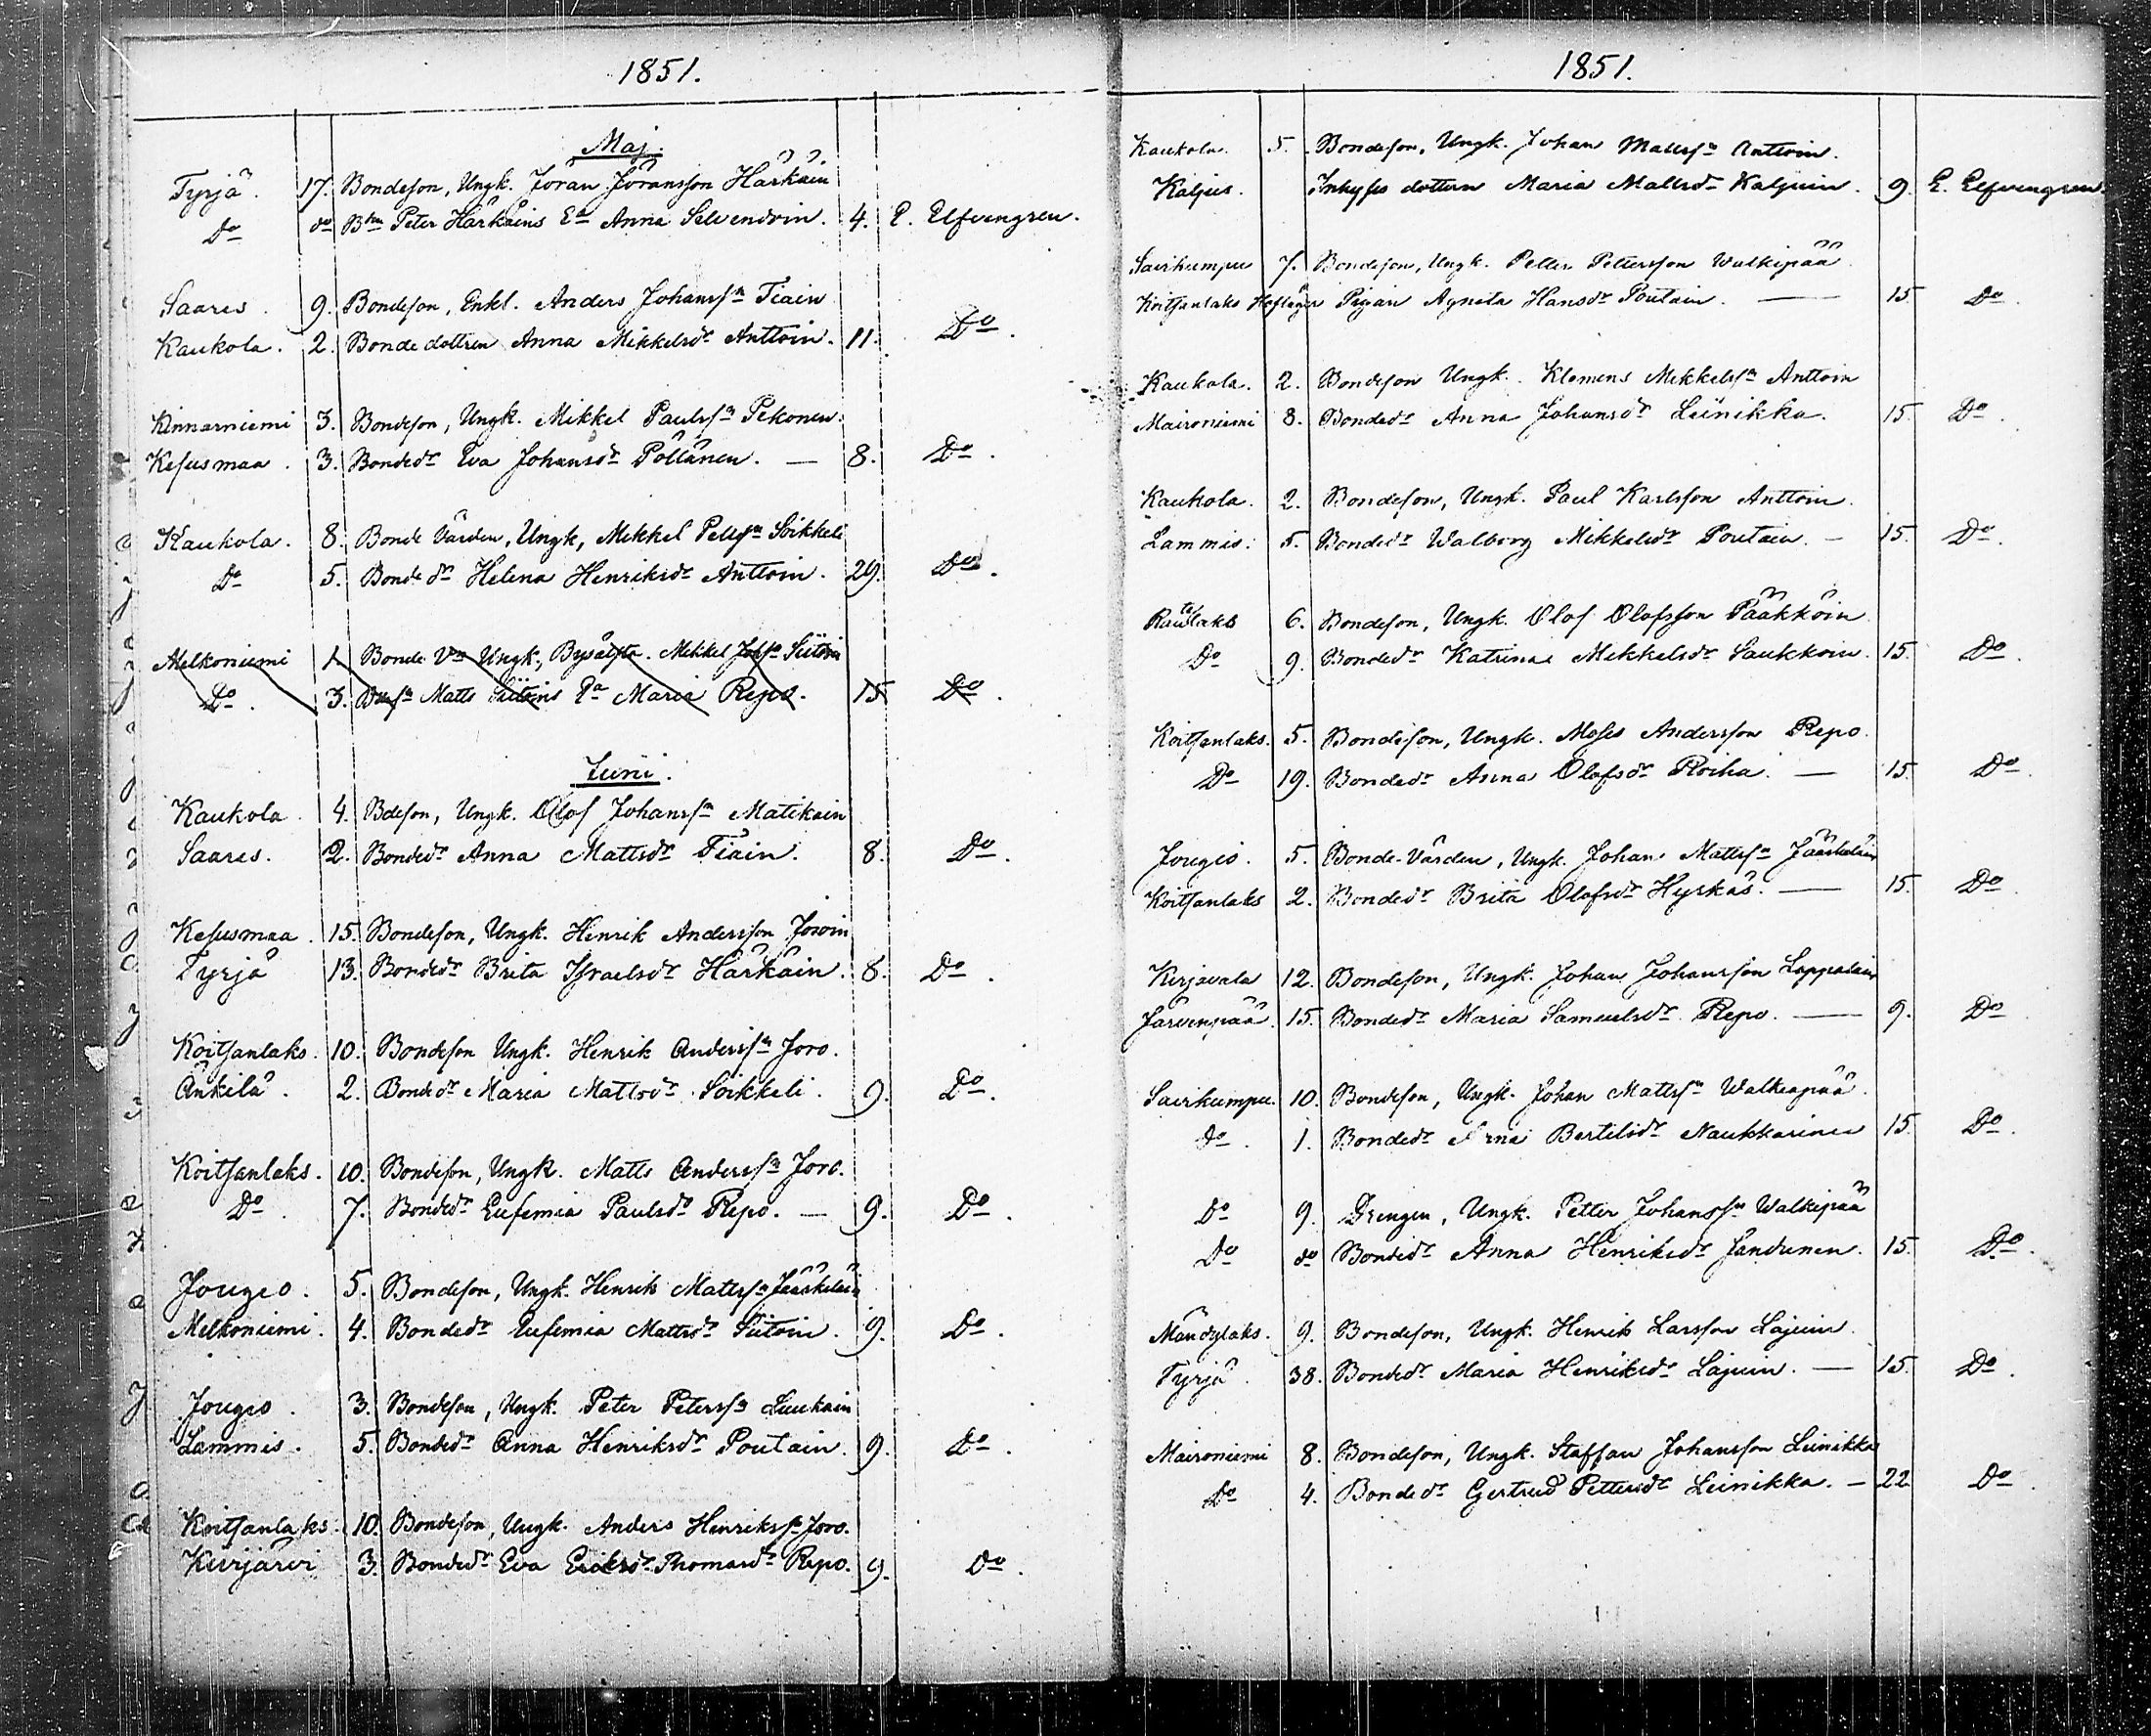 1851.
Maj.
Tyrjä. 17. Bondeson, Ungk. Jöran Jöransson Härkäin
Do do Bdn Peter Härkäins Ea Anna Silvendoin. 4. E. Elfvengren.
Saares. 9. Bondeson, Enkl. Anders Johanssn Tiain
Kaukola. 2. Bonde dottren Anna Mikkelsdr Anttoin. 11. Do.
Kinnarniemi 3. Bondeson, Ungk. Mikkel Paulssn Pekonen.
Kesusmaa. 3. Bondedr Eva Johansdr Pöllänen. — 8. Do.
Kaukola. 8. Bonde Värden, Ungk, Mikkel Pettssn Soikkeli
Do 5. Bonde dr Helena Henriksdr Anttoin. 29. Do.
Melkoniemi 1. Bonde Vn Ungk., Mikkel Johssn Siitoin
Do. 3. Matts Siitoins Ea Maria Repo. 15 Do.
Juni.
Kaukola 4. Bdeson, Ungk. Olof Johanssn Matikain
Saares. 2. Bondedr Anna Mattsdr Tiain. 8. Do.
Kesusmaa. 15. Bondeson, Ungk. Henrik Andersson Joroin
Tyrjä 13. Bondedr Brita Israelsdr Härkäin. 8. Do.
Koitsanlaks. 10. Bondeson Ungk. Henrik Anderssn Joro.
Änkilä. 2. Bondedr Maria Mattsdr Soikkeli. 9. Do.
Koitsanlaks. 10. Bondeson, Ungk. Matts Anderssn Joro.
Do 7. Bondedr Eufemia Paulsdr Repo. — 9. Do.
Jougio. 5. Bondeson, Ungk. Henrik Mattssn Jääskeläin
Melkoniemi. 4. Bondedr Eufemia Mattsdr Siitoin. 9. Do.
Jougio. 3. Bondeson, Ungk. Peter Peterssn Luukain
Lammis. 5. Bondedr Anna Henriksdr Poutain. 9. Do.
Koitsanlaks. 10. Bondeson, Ungk. Anders Henrikssn Joro.
Kivijärvi 3. Bondedr Eva Thomasdr Repo. 9. Do.
1851.
Kaukola. 5. Bondeson, Ungk. Johan Mattssn Anttoin.
Kaljus. Inhyses dottern Maria Mattsdr Kaljuin. 9. E. Elfvengren.
Sairkumpu 7. Bondeson, Ungk. Petter Pettersson Walkipää.
Koitsanlaks Hofläger Pigan Agneta Hansdr Poutain. — 15 Do.
Kaukola. 2. Bondeson Ungk. Klemens Mikkelssn Anttoin
Maironiemi 8. Bondedr Anna Johansdr Leinikka. 15. Do.
Kaukola. 2. Bondeson, Ungk. Paul Karlsson Anttoin.
Lammis. 5. Bondedr Walborg Mikkelsdr Poutain. — 15. Do.
Rautlaks 6. Bondeson, Ungk. Olof Olofsson Pääkköin
Do 9. Bondedr Katrina Mikkelsdr Saukkoin. 15. Do.
Koitsanlaks. 5. Bondeson, Ungk. Moses Andersson Repo.
Do 19. Bondedr Anna Olofsdr Roiha. — 15. Do.
Jougio. 5. Bonde-Värden, Ungk. Johan Mattssn Jääskeläin
Koitsanlaks 2. Bondedr Brita Olofsdr Hyrkäs. — 15. Do.
Kirjavala 12. Bondeson, Ungk. Johan Johansson Lappalain
Järvenpää. 15. Bondedr Maria Samuelsdr Repo. — 9. Do
Sairkumpu. 10. Bondeson, Ungk. Johan Mattssn Walkeapää.
Do. 1. Bondedr Anna Bertilsdr Naukkarinen 15. Do.
Do 9. Drengen, Ungk. Petter Johanssn Walkipää
Do do Bondedr Anna Henriksdr Jandunen. 15. Do.
Mändylaks. 9. Bondeson, Ungk. Henrik Larsson Lajuin.
Tyrjä. 38. Bondedr Maria Henriksdr Lajuin. — 15. Do.
Maironiemi 8. Bondeson, Ungk. Staffan Johansson Leinikka
Do 4. Bondedr Gertrud Pettersdr Leinikka. — 22 Do.